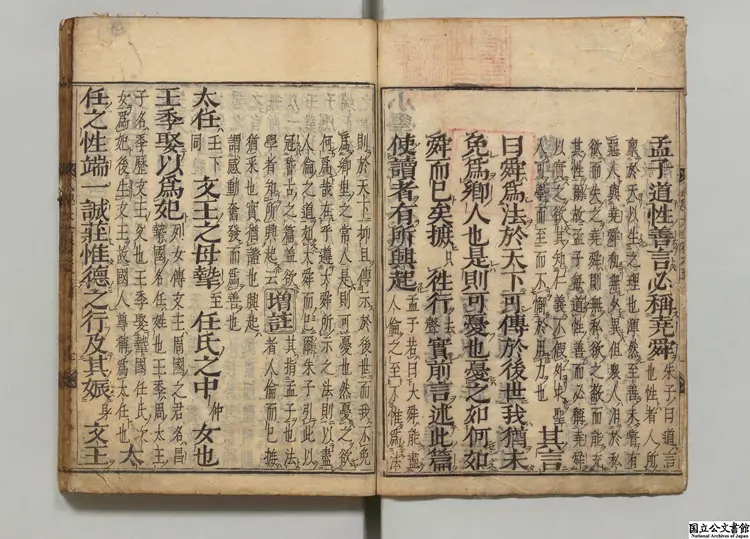 孟子道性善言必稱堯舜朱子曰道言
也性者人所
稟於天以生之理也渾然至善未嘗有
惡人與堯舜初無少異但衆人汨於私
欲而失之堯舜則無私欲之蔽而能充
其性爾故孟子每道性善而必稱堯舜
以實之欲其知仁義不假外求聖
人可學而至而不懈於用力也其言
曰舜爲法於天下可傳於後世我猶未
免爲鄉人也是則可憂也憂之如何如
舜而已矣摭往行去聲實前言述此篇
使讀者有所興起孟子若曰大舜能盡
人倫之至不惟爲法
則於天下抑且傳示於後世而我不免
爲鄉里之常人是則可憂也然憂之欲
何爲哉在乎遵大舜所示之法則以盡
人倫之道如大舜而已爾朱子引此以
冠稽古之篇蓋欲
學者知所興起云增註其指孟子也法
者人倫而已摭
猶采也實猶證也興起
謂感動奮發而爲善也
太任壬下同文王之母摯至任氏之中仲女也
王季娶以爲妃列女傳文王周國之君名昌
摯國名任姓也王季周太王
子名季歷文王父也王季娶摯國任氏次
女爲妃後生文王故國人尊稱爲太任也太
任之性端一誠莊惟德之行及其娠身文王
国立公文書館
National Archives of Japan